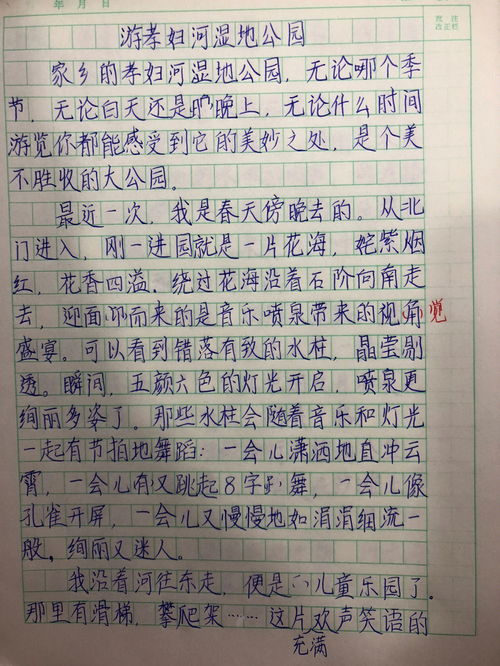 年 月 日
批 注
改正栏
游孝妇河湿地公园
家乡的孝妇河湿地公园，无论哪个季
节，无论白天还是晚上，无论什么时间
游览你都能感受到它的美妙之处，是个美
不胜收的大公园。
最近一次，我是春天傍晚去的。从北
门进入，刚一进园就是一片花海，姹紫烟
红，花香四溢，绕过花海沿着石阶向南走
去，迎面而来的是音乐喷泉带来的视角 览
盛宴。可以看到错落有致的水柱，晶莹剔
透。瞬间，五颜六色的灯光开启，喷泉更
绚丽多姿了。那些水柱会随着音乐和灯光
一起有节拍地舞蹈：一会儿潇洒地直冲云
霄，一会儿有又跳起8字舞，一会儿像
孔雀开屏，一会儿又慢慢地如涓涓细流一
般。绚丽又迷人。
我沿着河往东走，便是儿童乐园了。
那里有滑梯，攀爬架……这片欢声笑语的
充满